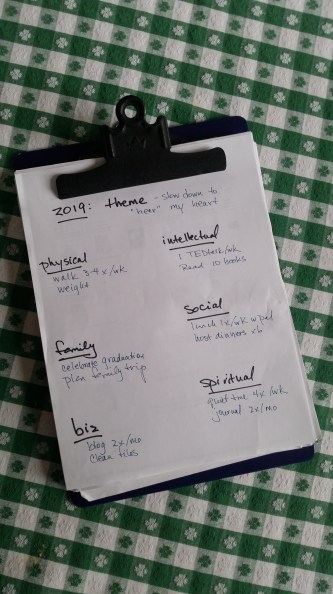 2019: theme - slow down to
"hear" my heart
physical
walk 3-4 x/wk
weight
intellectual
1 TEDtalk/wk
Read 10 books
social
lunch 1x/wk w pal
host dinners x6
family
celebrate graduation
plan family trip
spiritual
quiet time 4x/wk
journal 2x/mo
biz
blog 2x/mo
clean files